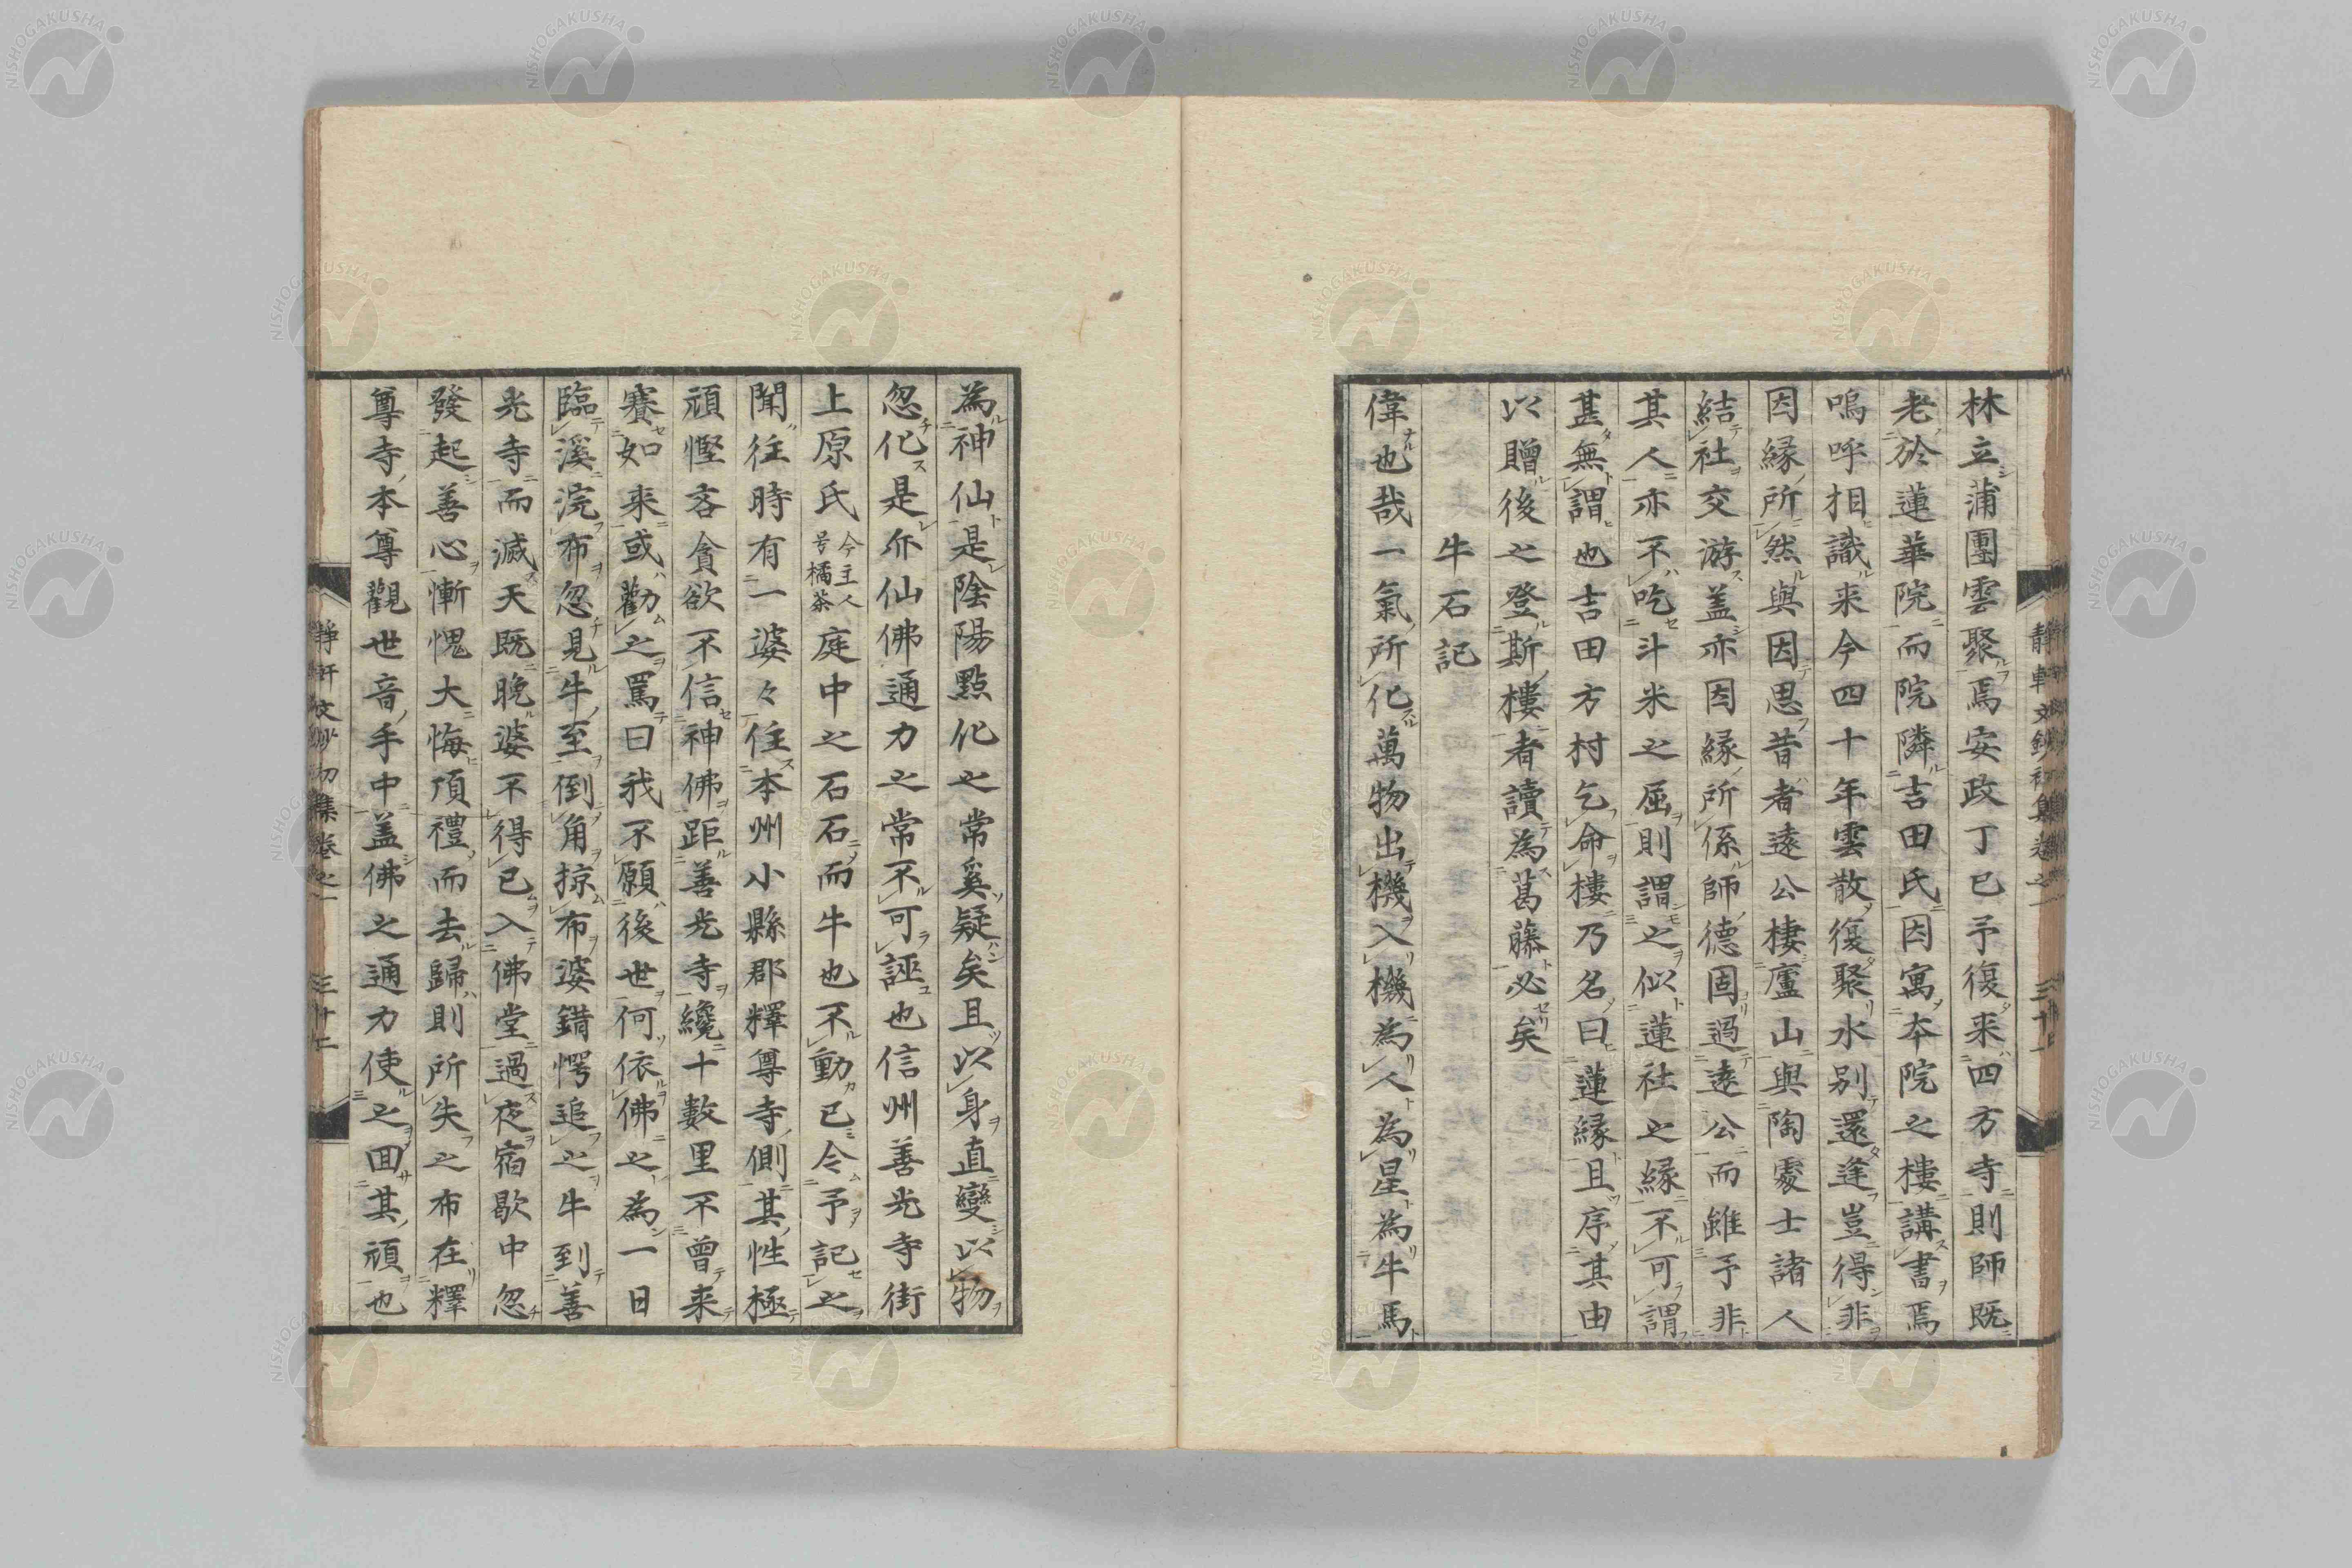 林立蒲團雲聚焉安政丁巳予復来四方寺則師既
老於蓮華院而院隣吉田氏因寓本院之樓講書焉
嗚呼相識来今四十年雲散復聚水別還逢豈得非
因縁所然與因思昔者遠公棲廬山與陶處士諸人
結社交游盖亦因縁所係師德固過遠公而雖予非
其人亦不吃斗米之屈則謂之似蓮社之縁不可謂
甚無謂也吉田方村乞命樓乃名曰蓮縁且序其由
以贈後之登斯樓者讀為葛藤必矣
牛石記
偉也哉一氣所化萬物出機入機為人為星為牛馬
為神仙是陰陽點化之常奚疑矣且以身直變以物
忽化是亦仙佛通力之常不可誣也信州善光寺街
上原氏今主人号橘茶庭中之石石而牛也不動已令予記之
聞往時有一婆々住本州小縣郡釋尊寺側其性極
頑慳吝貪欲不信神佛距善光寺纔十數里不曾来
賽如来或勸之罵曰我不願後世何依佛之為一日
臨溪浣布忽見牛至倒角掠布婆錯愕追之牛到善
光寺而滅天既晩婆不得已入佛堂過夜宿歇中忽
發起善心慚愧大悔頂禮而去歸則所失之布在釋
尊寺本尊觀世音手中盖佛之通力使之回其頑也
靜軒文鈔初集卷之一 三十一
靜軒文鈔初集卷之一 三十二
NISHOGAKUSHA